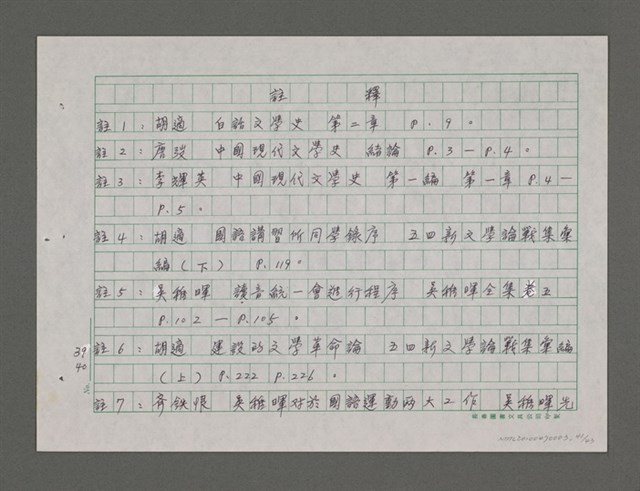 註 釋
註1：胡適 白話文學史 第二章 P.9。
註2：唐弢 中國現代文學史 緒論 P.3—P.4。
註3：李輝英 中國現代文學史 第一編 第一章 P.4—
P.5。
註4：胡適 國語講習所同學錄序 五四新文學論戰集彙
編（下） P.119。
註5：吳稚暉 讀音統一會進行程序 吳稚暉全集卷五
P.102—P.105。
39
40
註6：胡適 建設的文學革命論 五四新文學論戰集彙編
（上）P.222 P.226。
註7：齊鉄恨 吳稚暉对於國語運動兩大工作 吳稚暉先